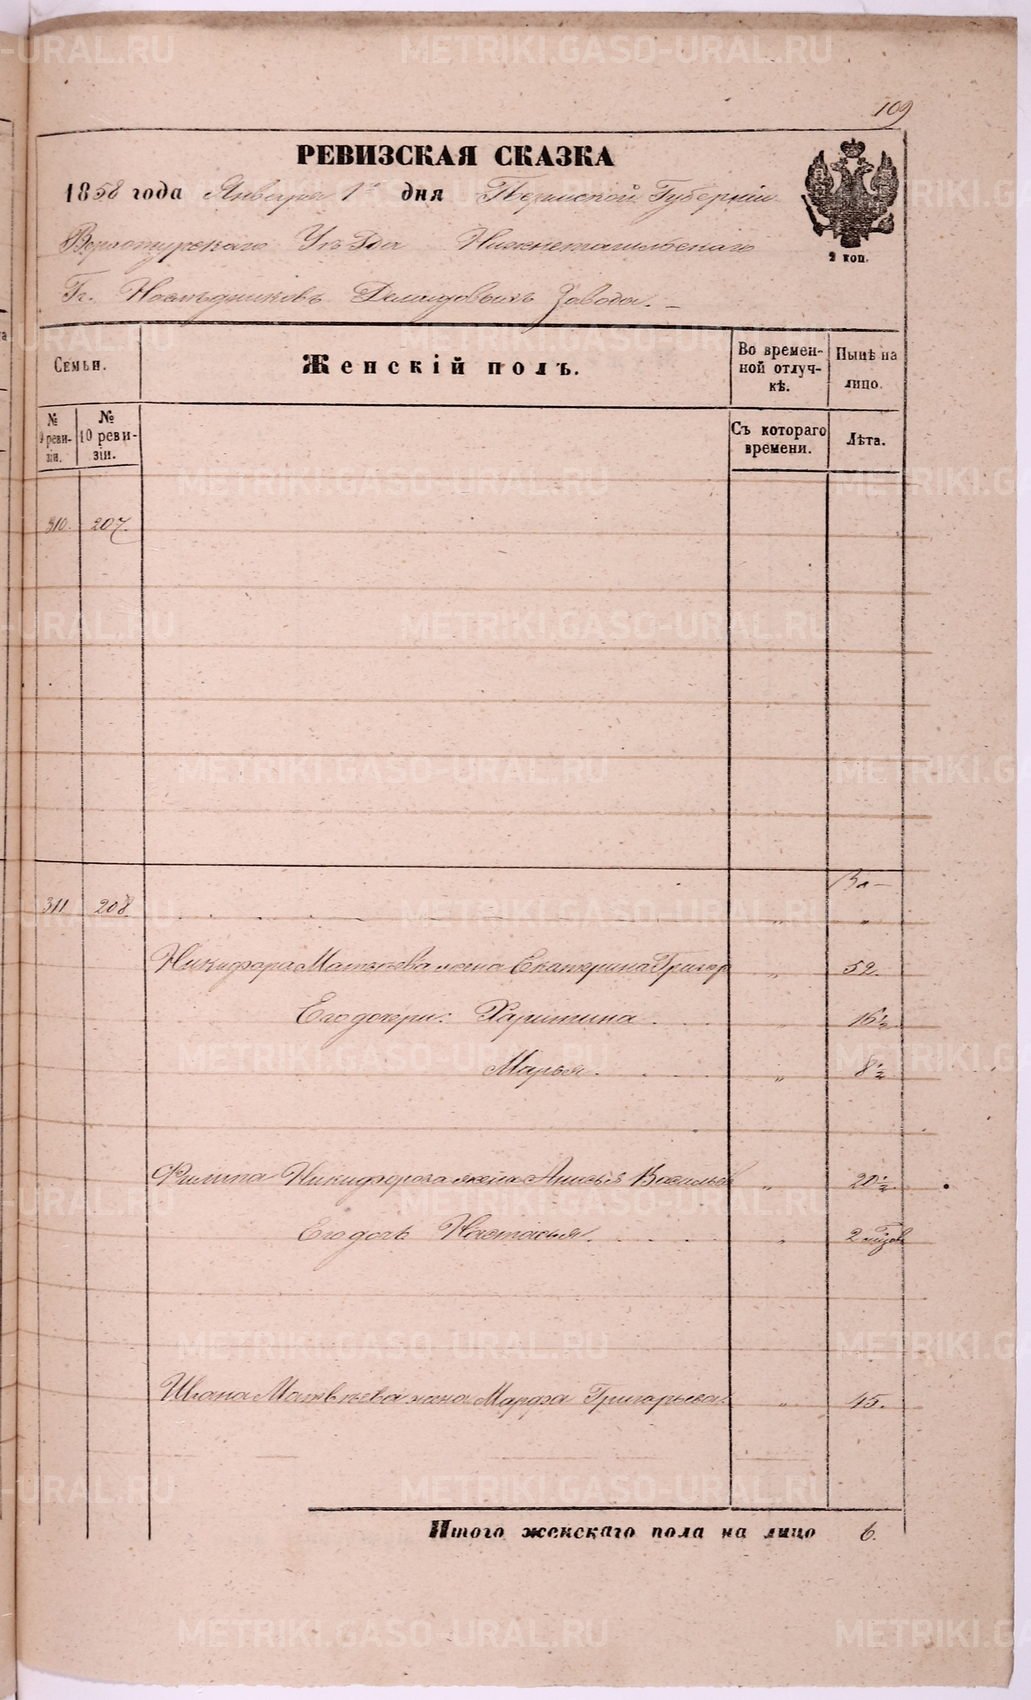 109
РЕВИЗСКАЯ СКАЗКА
1858 года Января 1го дня Пермской Губернии
Верхотурскаго Уѣзда Нижнетагильскаго
Гг. Наслѣдниковъ Демидовыхъ Завода.
2 коп.
Семьи.
Женскій полъ.
Во времен-
ной отлуч-
кѣ.
Нынѣ на
лицо.
№
9 реви-
зіи.
№
10 реви-
зіи.
Съ котораго
времени.
Лѣта.
310. 207.
311 208 „ „
Никифора Матвѣева жена Екатерина Григор „ 52.
Его дочери: Харитина „ 16½
Марья „ 8½
Филипа Никифорова жена Анисья Васильев „ 20½
Его дочь Настасья „ 2
Ивана Матвѣева жена Марфа Григорьева „ 45.
Итого женскаго пола на лицо 6.
METRIKI.GASO-URAL.RU